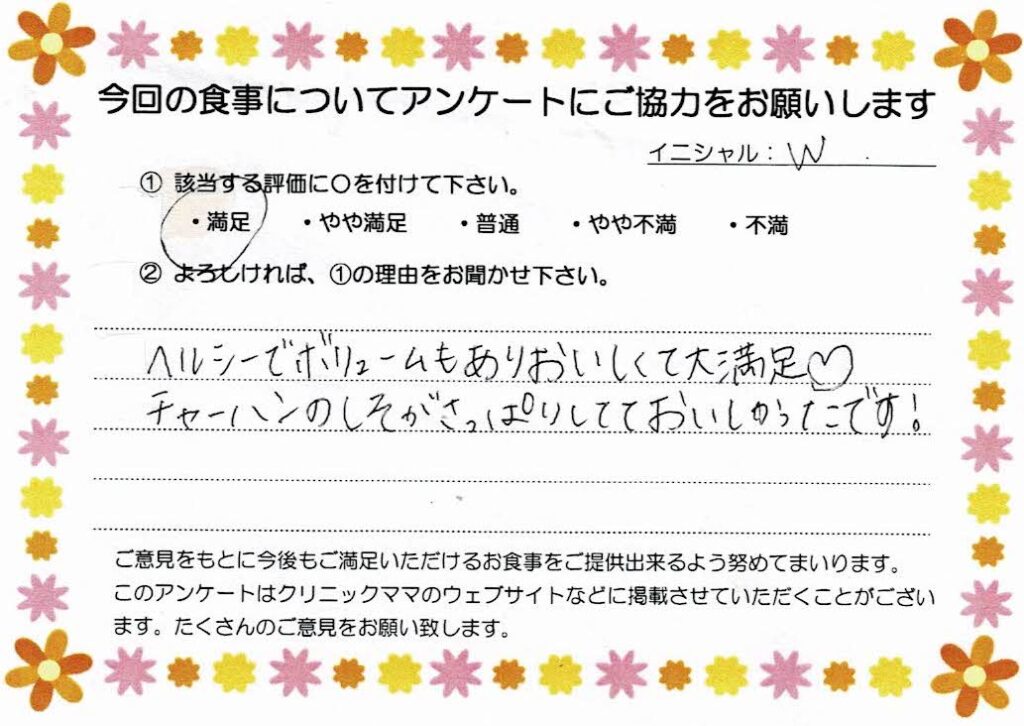 今回の食事についてアンケートにご協力をお願いします
イニシャル：W
① 該当する評価に〇を付けて下さい。
・満足　・やや満足　・普通　・やや不満　・不満
② よろしければ、①の理由をお聞かせ下さい。
ヘルシーでボリュームもありおいしくて大満足♡
チャーハンのしそがさっぱりしてておいしかったです!
ご意見をもとに今後もご満足いただけるお食事をご提供出来るよう努めてまいります。
このアンケートはクリニックママのウェブサイトなどに掲載させていただくことがござい
ます。たくさんのご意見をお願い致します。